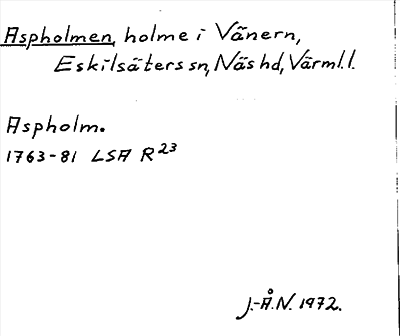 Aspholmen, holme i Vänern,
Eskilsäters sn, Näs hd, Värml. l.
Aspholm.
1763-81 LSA R23
J.-Å.N. 1972.